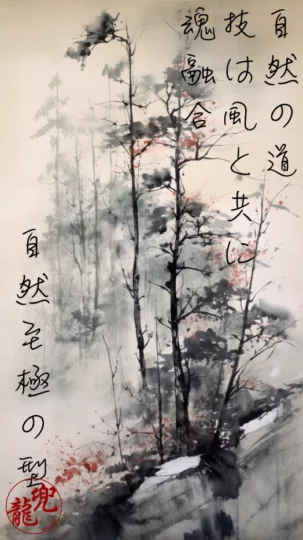 自然の道
技は風と共に
魂融合
自然至極の型
兜龍